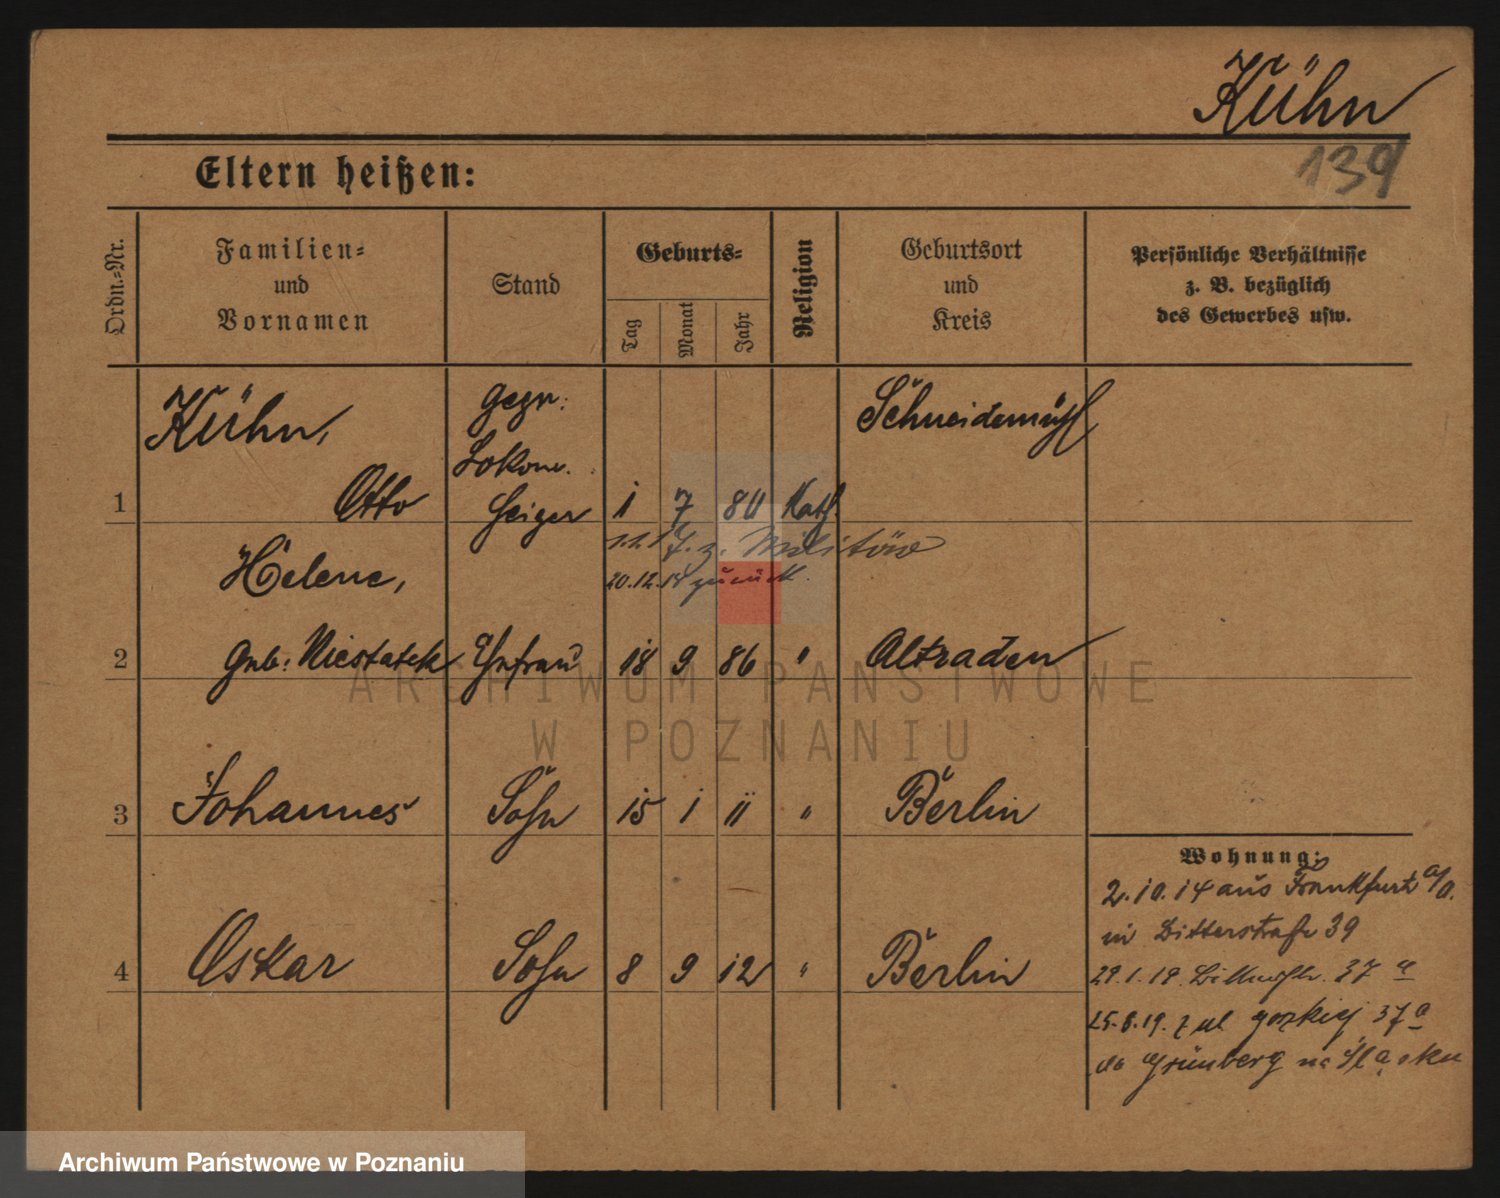 Kühn
139
Eltern heißen:
Ordn.-Nr.
Familien-
und
Vornamen
Stand
Geburts-
Tag
Monat
Jahr
Religion
Geburtsort
und
Kreis
Persönliche Verhältnisse
z. B. bezüglich
des Gewerbes usw.
Kühn,
gepr.
Lokom.
Schneidemühl
1 Otto Heizer 1 7 80 Kath.
z. Militär
Helene,
20.12.18 zurück.
2 geb. Niestatek Ehefrau 18 9 86 " Altraden
3 Johannes Sohn 15 1 11 " Berlin
Wohnung:
2.10.14 aus Frankfurt a/O.
in Bitterstraße 39
4 Oskar Sohn 8 9 12 " Berlin
29.1.18. 37 a
25.8.19. z ul gorzkiej 37 a
do Grünberg na Śląsku
ARCHIWUM PAŃSTWOWE
W POZNANIU
Archiwum Państwowe w Poznaniu